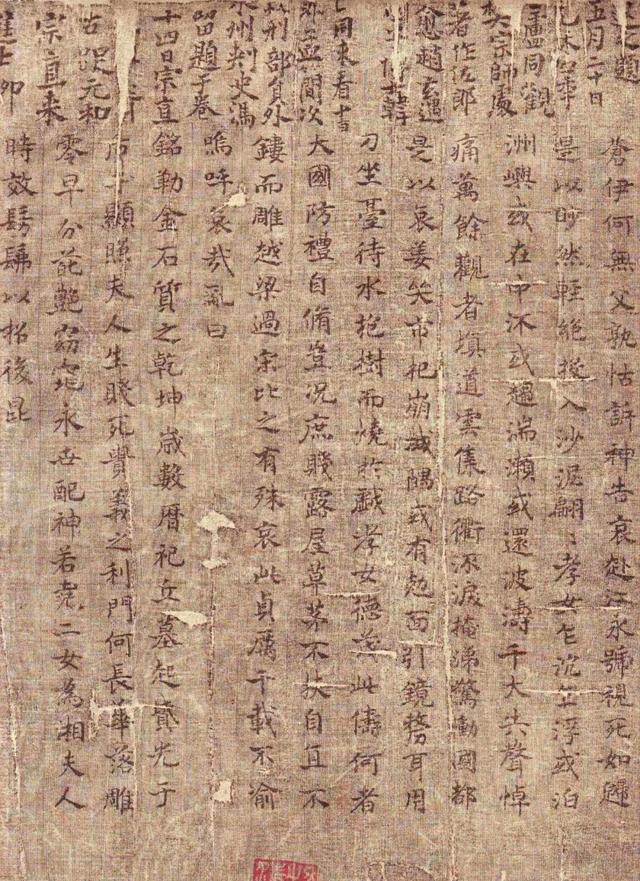 題
五月二十日
盧同觀
大宗師處
著作佐郎
愈趙玄遇
韓
同来看書
次
刑部員外
永州刺史馮
留題于卷
十四日宗直
元和
宗直来
蒼伊何無父孰怙訴神告哀赴江永號視死如歸
是以眇然輕絕投入沙泥翩〻孝女乍沉乍浮或泊
洲嶼或在中㳅或趨湍瀨或還波濤千夫共聲悼
痛萬餘觀者填道雲集路衢泣淚掩涕驚動國都
是以哀姜哭市杞崩城隅或有尅面引鏡剺耳用
刀坐臺待水抱樹而燒於戲孝女德茂此儔何者
大國防禮自脩豈況庶賤露屋草茅不扶自直不
鏤而雕越梁過宋比之有殊哀此貞厲千載不渝
嗚呼哀哉亂曰
銘勒金石質之乾坤歲數曆祀丘墓起墳光于
后土顯照夫人生賤死貴義之利門何悵華落雕
零早分葩艷窈窕永世配神若堯二女為湘夫人
時效髣髴以招後昆